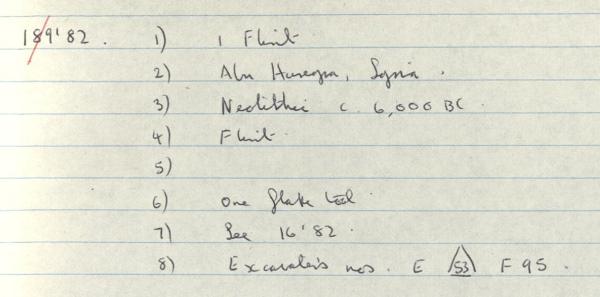 189'82. 1) 1 Flint
2) Abu Hureyra, Syria.
3) Neolithic c. 6,000 BC.
4) Flint.
5)
6) One flake tool.
7) See 16'82.
8) Excavators nos. E 53 F 95.